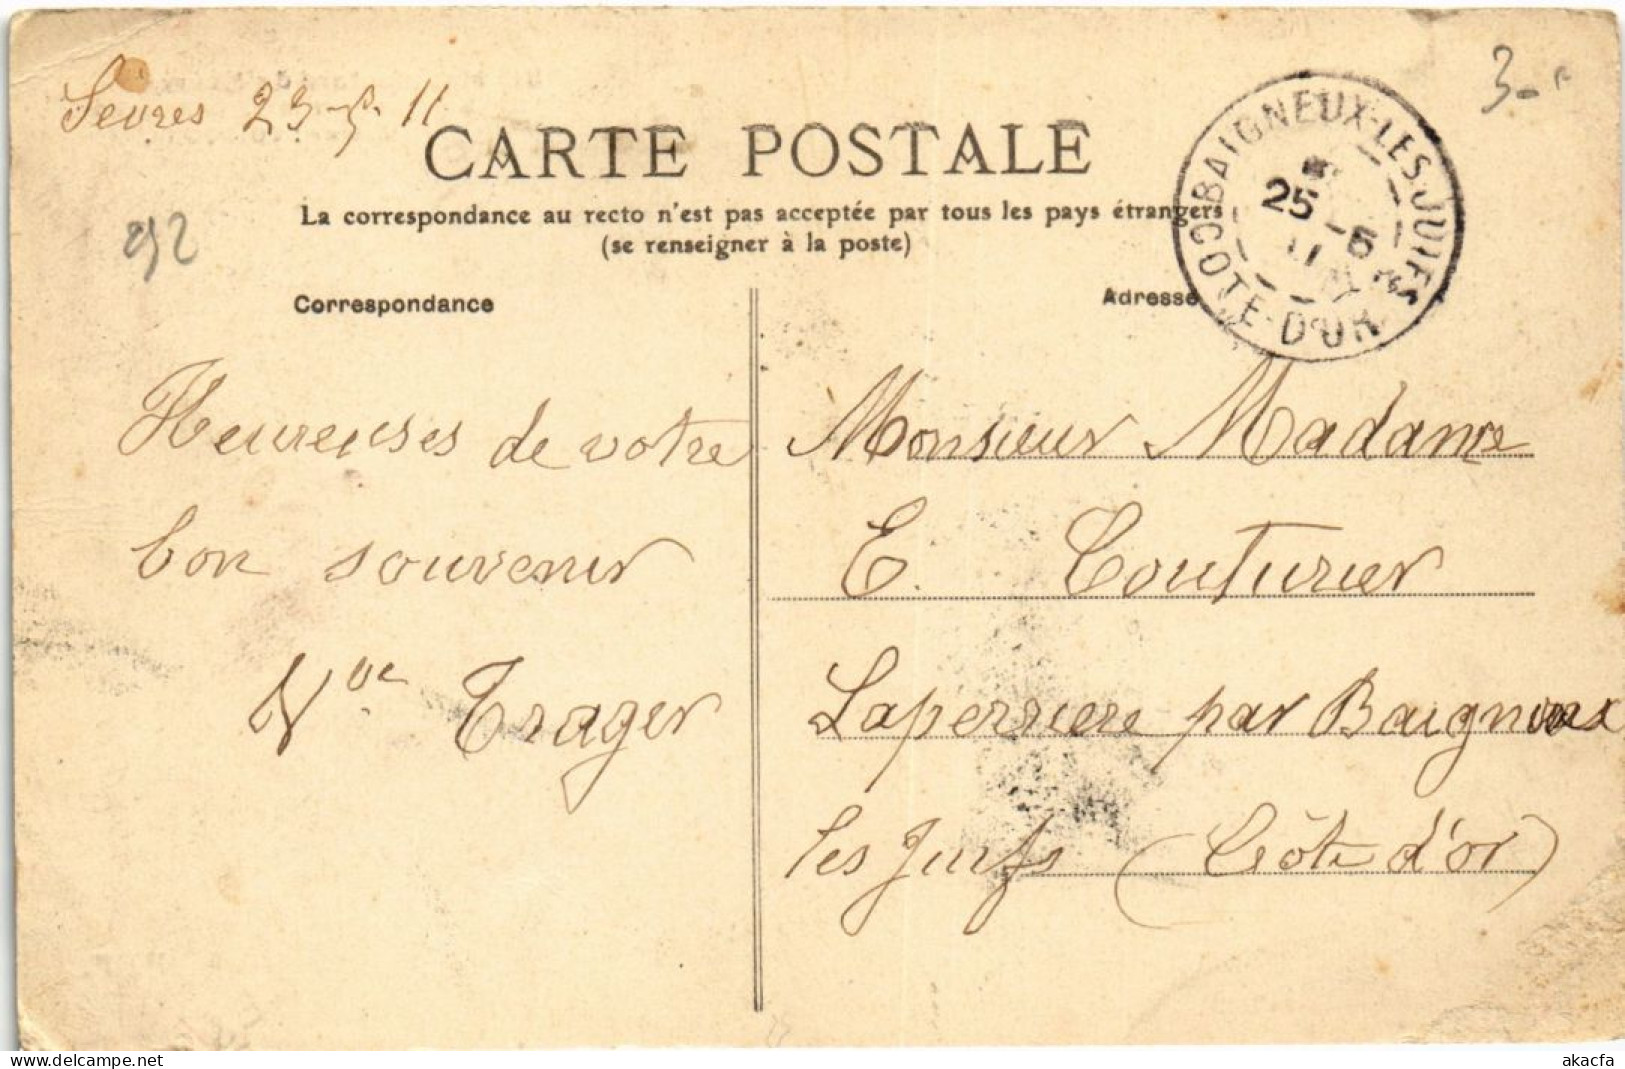 Sèvres 23-5-11
3-
CARTE POSTALE
La correspondance au recto n'est pas acceptée par tous les pays étrangers
(se renseigner à la poste)
92
BAIGNEUX-LES-JUIFS
25 -5
11
COTE-D'OR
Correspondance
Adresse
Heureuses de votre
bon souvenir
Vve Trager
Monsieur Madame
E. Couturier
Laperriere par Baigneux
les Juifs (Côte d'or)
akacfa
delcampe.net